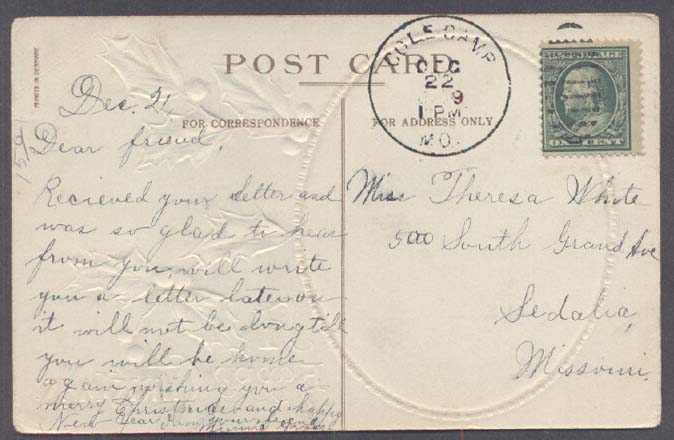 POST CARD
COLE CAMP
DEC
22
9
1 PM
MO.
ONE CENT
PRINTED IN GERMANY
FOR CORRESPONDENCE
FOR ADDRESS ONLY
Dec. 21,
Dear friend,
Recieved your letter and
was so glad to hear
from you, will write
you a letter later on
it will not be long till
you will be home
again wishing you a
merry Christmas and happy
New Year from your friend
Miss Theresa White
500 South Grand Ave
Sedalia,
Missouri.